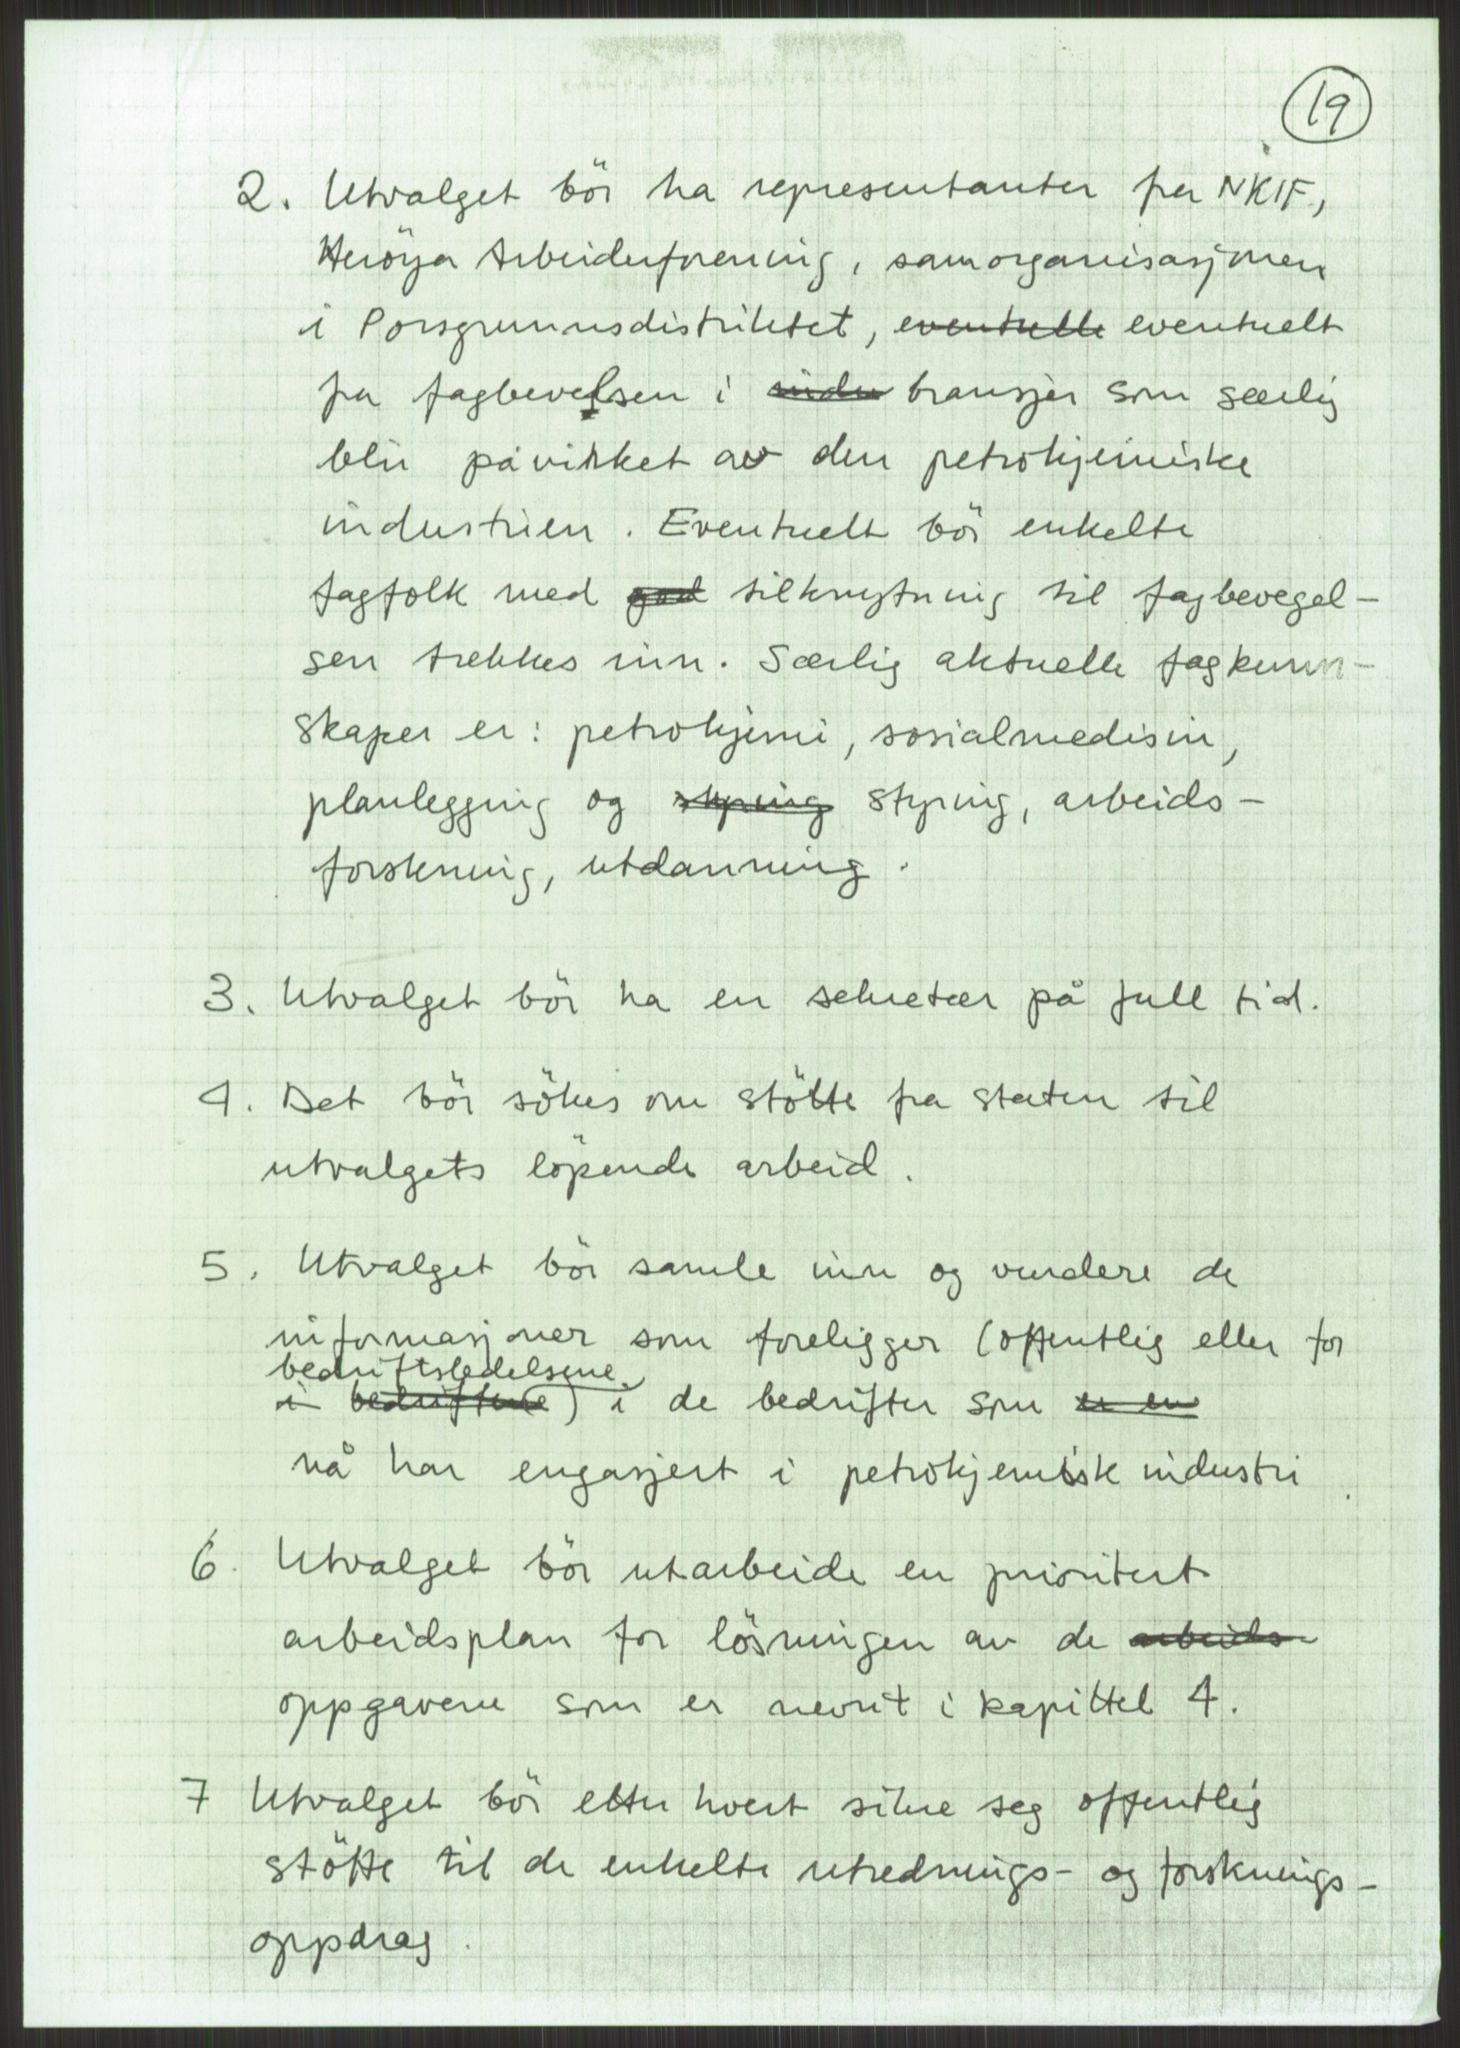 19
2. Utvalget bör ha representanter fra NKIF,
Heröya Arbeiderforening, samorganisasjonen
i Porsgrunnsdistriktet, eventuelle eventuelt
fra fagbevelsen i bransjer som særlig
blir påvirket av den petrokjemiske
industrien. Eventuelt bör enkelte
fagfolk med god tilknytning til fagbevegel-
sen trekkes inn. Særlig aktuelle fagkunn-
skaper er: petrokjemi, sosialmedisin,
planlegging og styring styring, arbeids-
forskning, utdanning.
3. Utvalget bör ha en sekretær på full tid.
4. Det bör sökes om stötte fra staten til
utvalgets löpende arbeid.
5. Utvalget bör samle inn og vurdere de
informasjoner som foreligger (offentlig eller for
bedriftsledelsene
i bedriftene) i de bedrifter som er en
nå har engasjert i petrokjemisk industri.
6. Utvalget bör utarbeide en prioritert
arbeidsplan for lösningen av de arbeids
oppgavene som er nevnt i kapittel 4.
7 Utvalget bör etter hvert sikre seg offentlig
stötte til de enkelte utrednings- og forsknings-
oppdrag.